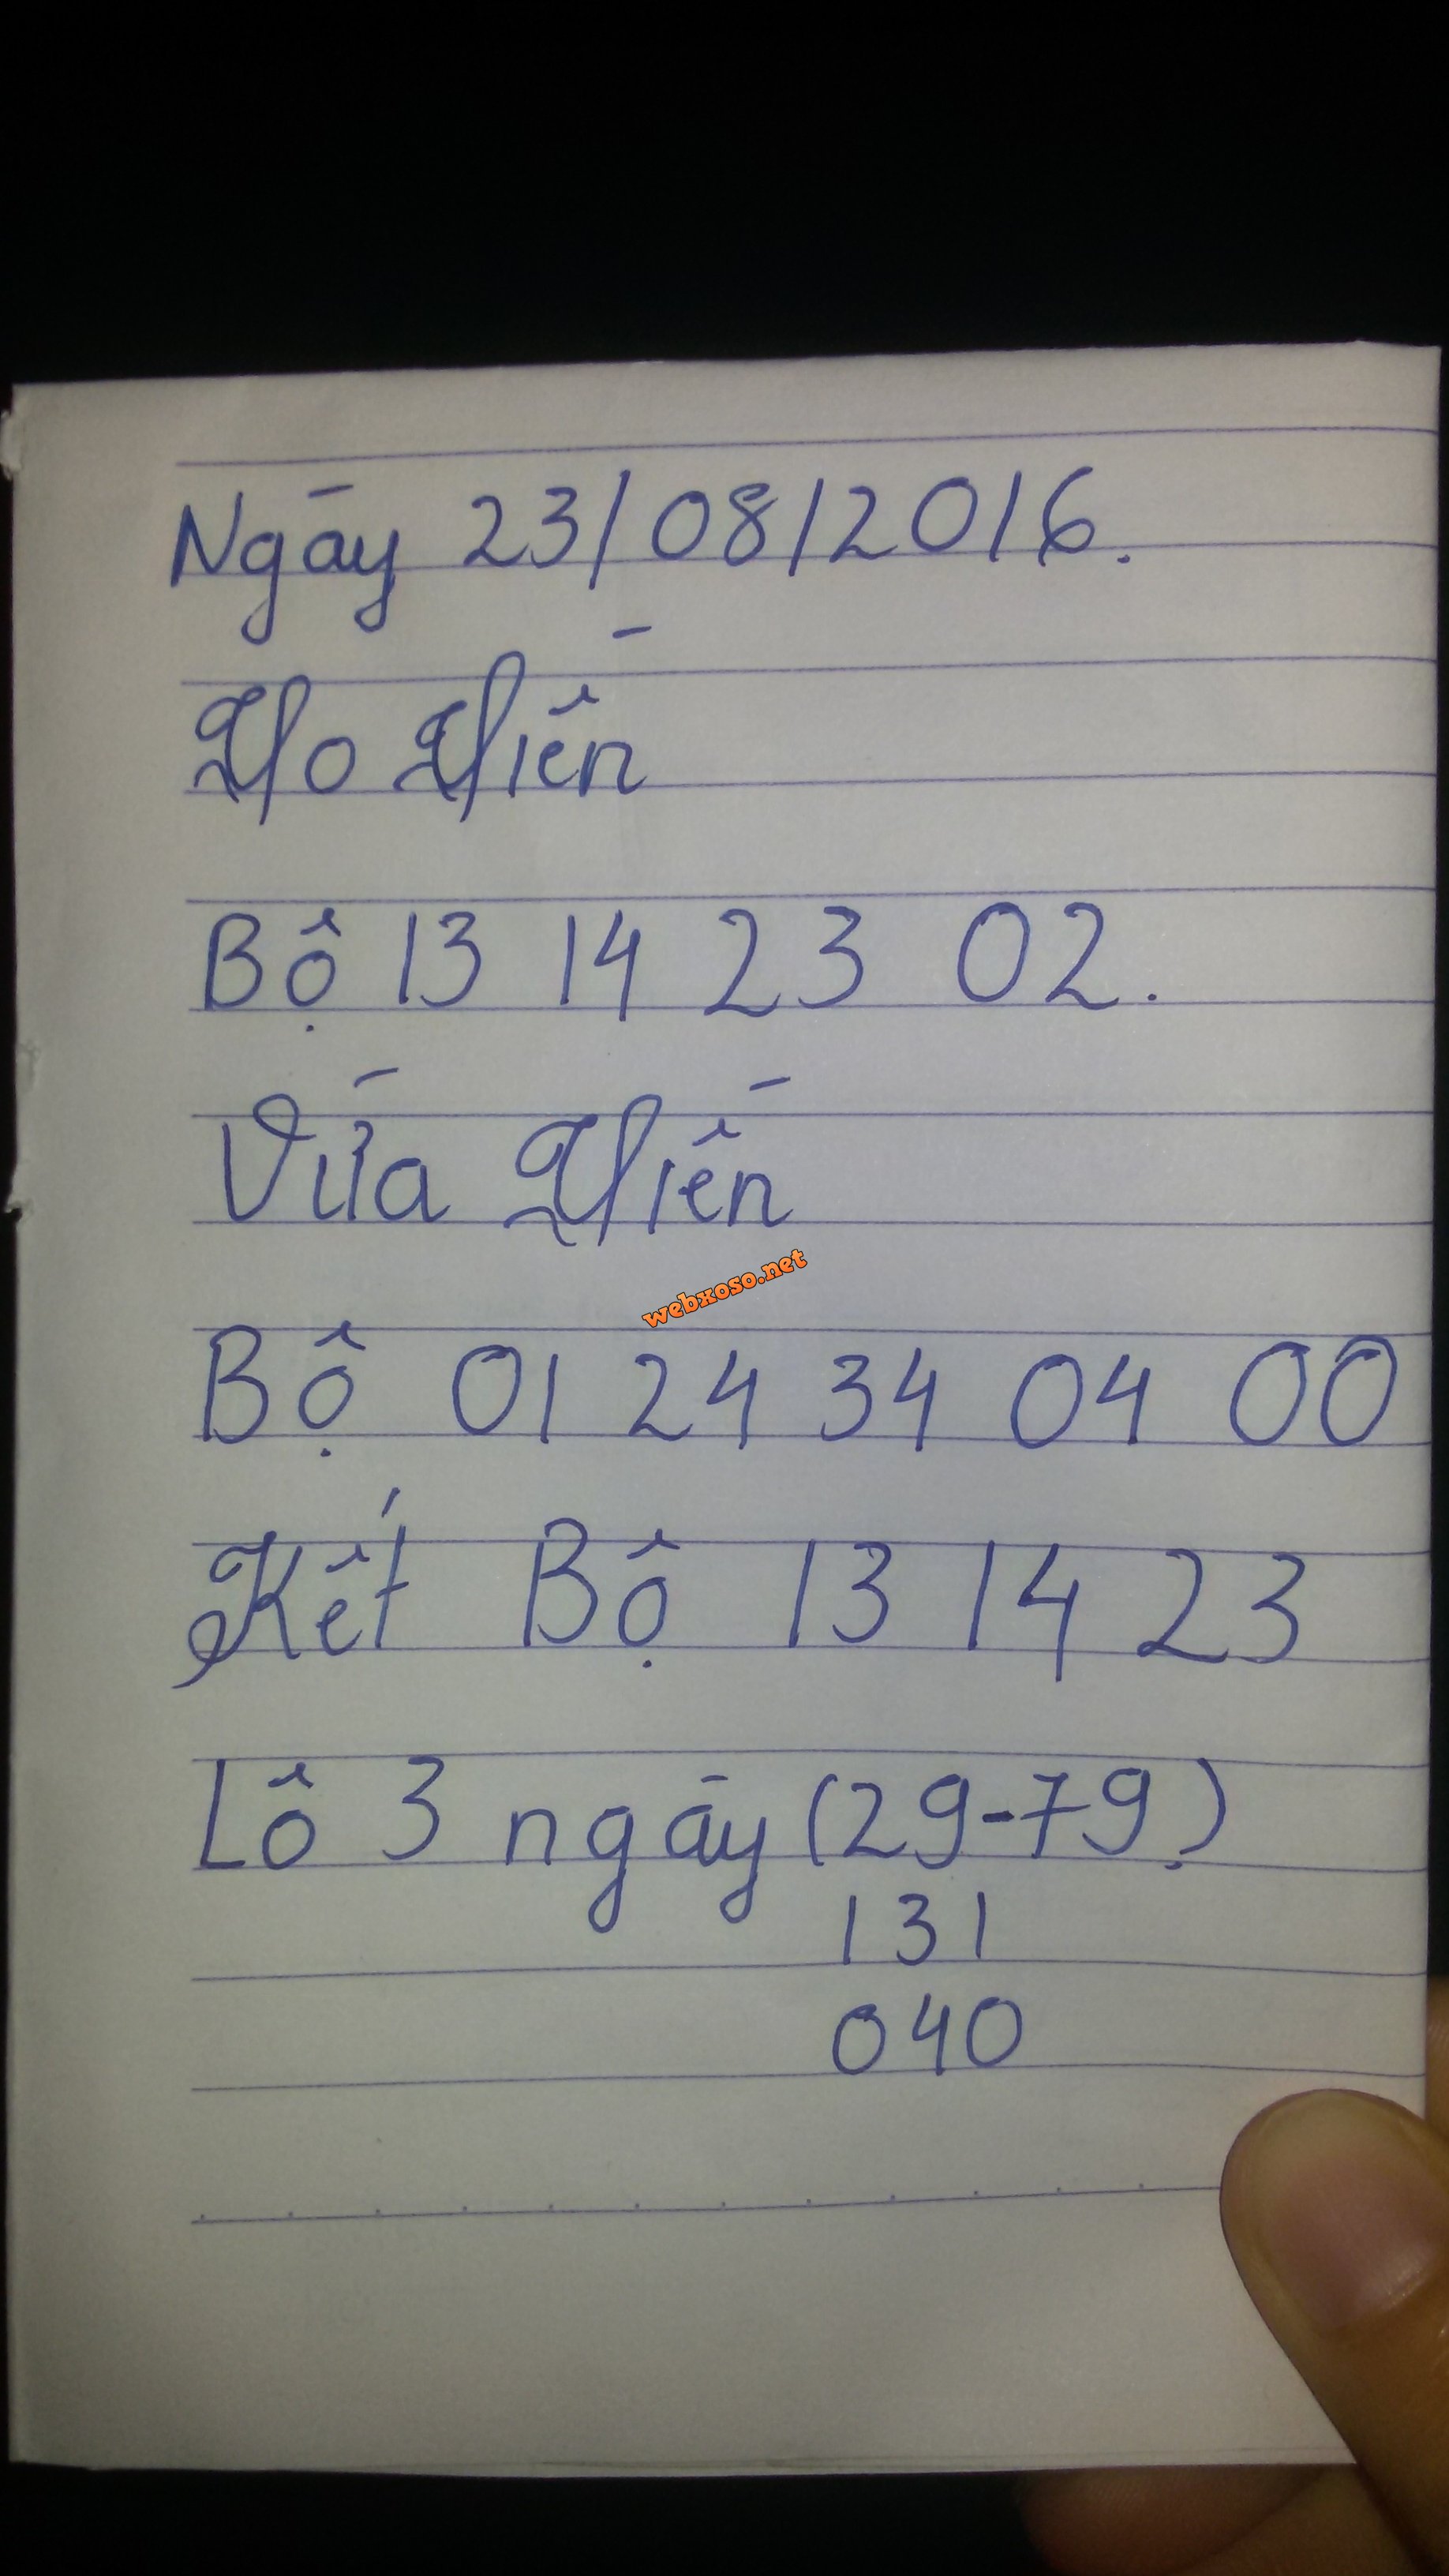 Ngày 23/08/2016.
To Tiền
Bộ 13 14 23 02.
Vừa Tiền
webxoso.net
Bộ 01 24 34 04 00
Kết Bộ 13 14 23
Lô 3 ngày (29-79)
131
040